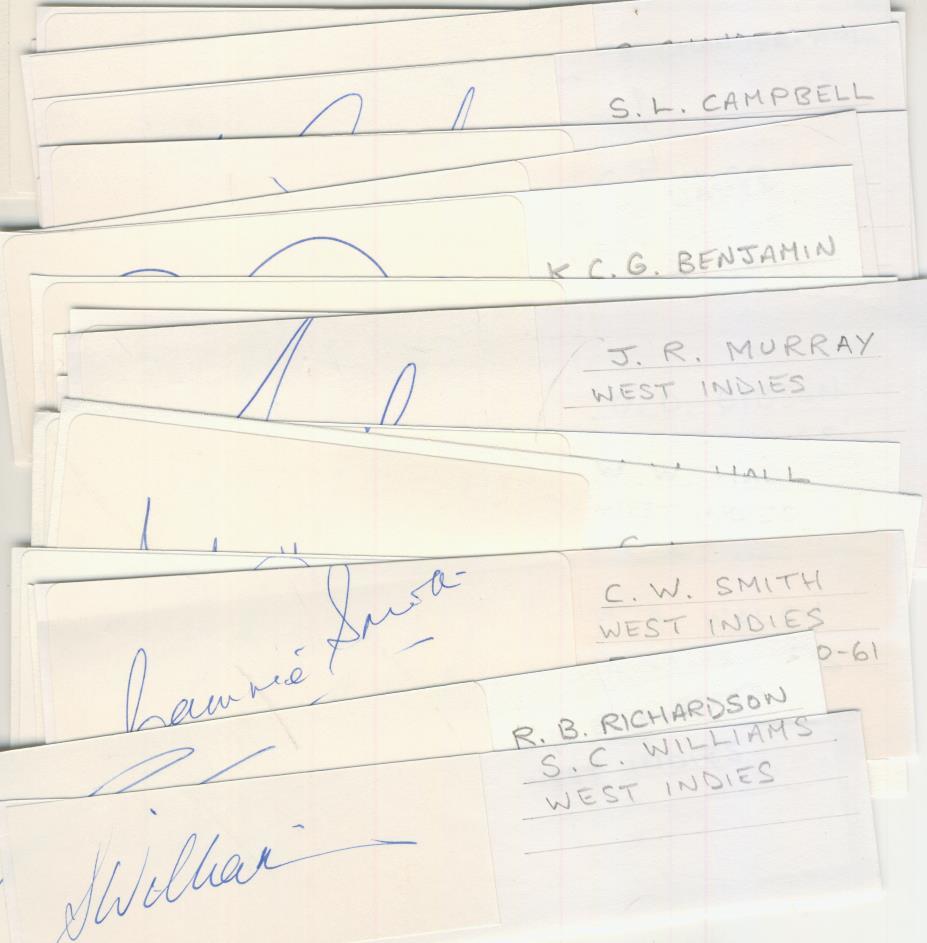 S. L. CAMPBELL
K C. G. BENJAMIN
J. R. MURRAY
WEST INDIES
HALL
C. W. SMITH
WEST INDIES
0-61
Cammie Smith
R. B. RICHARDSON
S. C. WILLIAMS
WEST INDIES
SWilliams